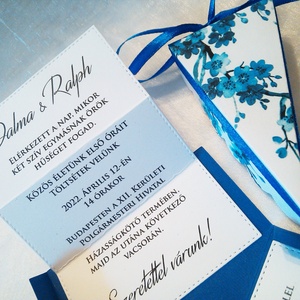 Dalma & Ralph
Elérkezett a nap, mikor
két szív egymásnak örök
hűséget fogad.
Közös életünk első óráit
töltsétek velünk
2022. április 12-én
14 órakor
Budapesten a XII. kerületi
Polgármesteri Hivatal
házasságkötő termében,
majd az utána következő
vacsorán.
Szeretettel várunk!